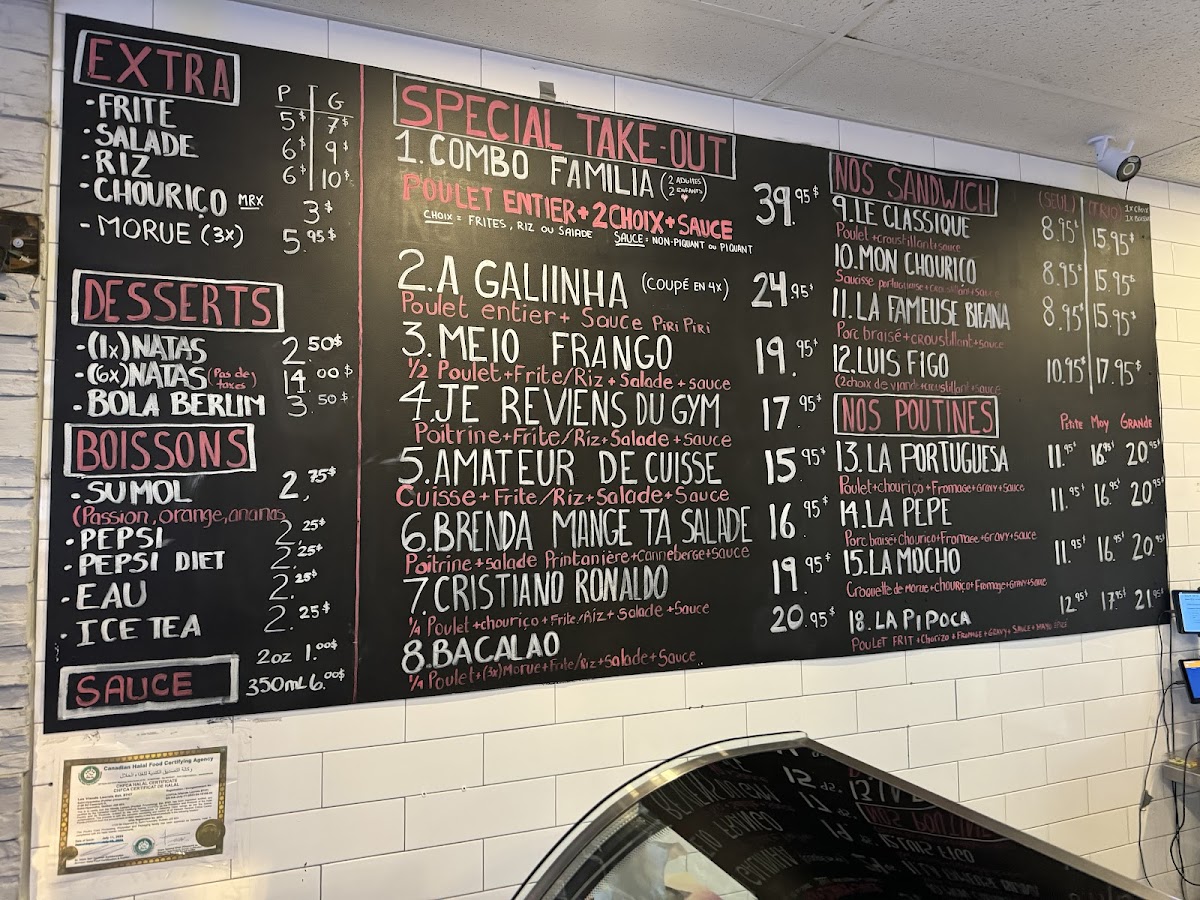 EXTRA
P G
·FRITE 5$ 7$
·SALADE 6$ 9$
·RIZ 6$ 10$
·CHOURIÇO MRX 3$
·MORUE (3x) 5.95$
DESSERTS
·(1x)NATAS 2.50$
·(6x)NATAS (Pas de taxes) 14.00$
·BOLA BERLIM 3.50$
BOISSONS
·SUMOL 2.75$
(Passion, orange, ananas
·PEPSI 2.25$
·PEPSI DIET 2.25$
·EAU 2.25$
·ICE TEA 2.25$
SAUCE
2oz 1.00$
350mL 6.00$
SPECIAL TAKE-OUT
1.COMBO FAMILIA (2 ADULTES 2 ENFANTS) 39.95$
POULET ENTIER+2CHOIX+SAUCE
CHOIX = FRITES, RIZ OU SALADE SAUCE = NON-PIQUANT OU PIQUANT
2.A GALIINHA (COUPÉ EN 4X) 24.95$
Poulet entier + Sauce Piri Piri
3.MEIO FRANGO 19.95$
1/2 Poulet+Frite/Riz+Salade+sauce
4.JE REVIENS DU GYM 17.95$
Poitrine+Frite/Riz+Salade+Sauce
5.AMATEUR DE CUISSE 15.95$
Cuisse+Frite/Riz+Salade+Sauce
6.BRENDA MANGE TA SALADE 16.95$
Poitrine+salade Printanière+Canneberge+sauce
7.CRISTIANO RONALDO 19.95$
1/4 Poulet+chouriço+Frite/Riz+Salade+Sauce
8.BACALAO 20.95$
1/4 Poulet+(3x)Morue+Frite/Riz+Salade+Sauce
NOS SANDWICH
(SEUL) (TRIO)
9.LE CLASSIQUE 8.95$ 15.95$
Poulet+croustillant+sauce
10.MON CHOURICO 8.95$ 15.95$
Saucisse portuguaise+croustillant+sauce
11.LA FAMEUSE BIFANA 8.95$ 15.95$
Porc braisé+croustillant+sauce
12.LUIS FIGO 10.95$ 17.95$
(2choix de viande+croustillant+sauce
NOS POUTINES
Petite Moy GRANDE
13.LA PORTUGUESA 11.95$ 16.95$ 20.95$
Poulet+chouriço+Fromage+gravy+sauce
14.LA PEPE 11.95$ 16.95$ 20.95$
Porc braisé+chouriço+Fromage+gravy+sauce
15.LA MOCHO 11.95$ 16.95$ 20.95$
Croquette de morue+chouriço+Fromage+Gravy+sauce
18.LA PIPOCA 12.95$ 17.95$ 21.95$
POULET FRIT+Chorizo+FROMAGE+GRAVY+SAUCE+
Canadian Halal Food Certifying Agency
CHFCA HALAL CERTIFICATE
CHFCA CERTIFICAT DE HALAL